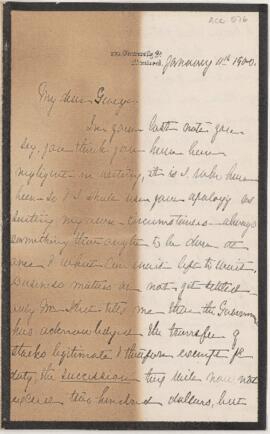 ACC 576
University St
Montreal.
January 11th 1900.
My dear George.
In your last note you
say, you think you have been
negligent in writing, it is I who have
been so & I shall use your apology as
suiting my own circumstances always
something that ought to be done at
once & what can envies left to wait.
Business matters are not yet settled
only Mr. told me that the Governor
has acknowledged the transfer of
stocks legitimate & therefore exempt fr
duty, the succession they will now not
exceed two hundred dollars, but